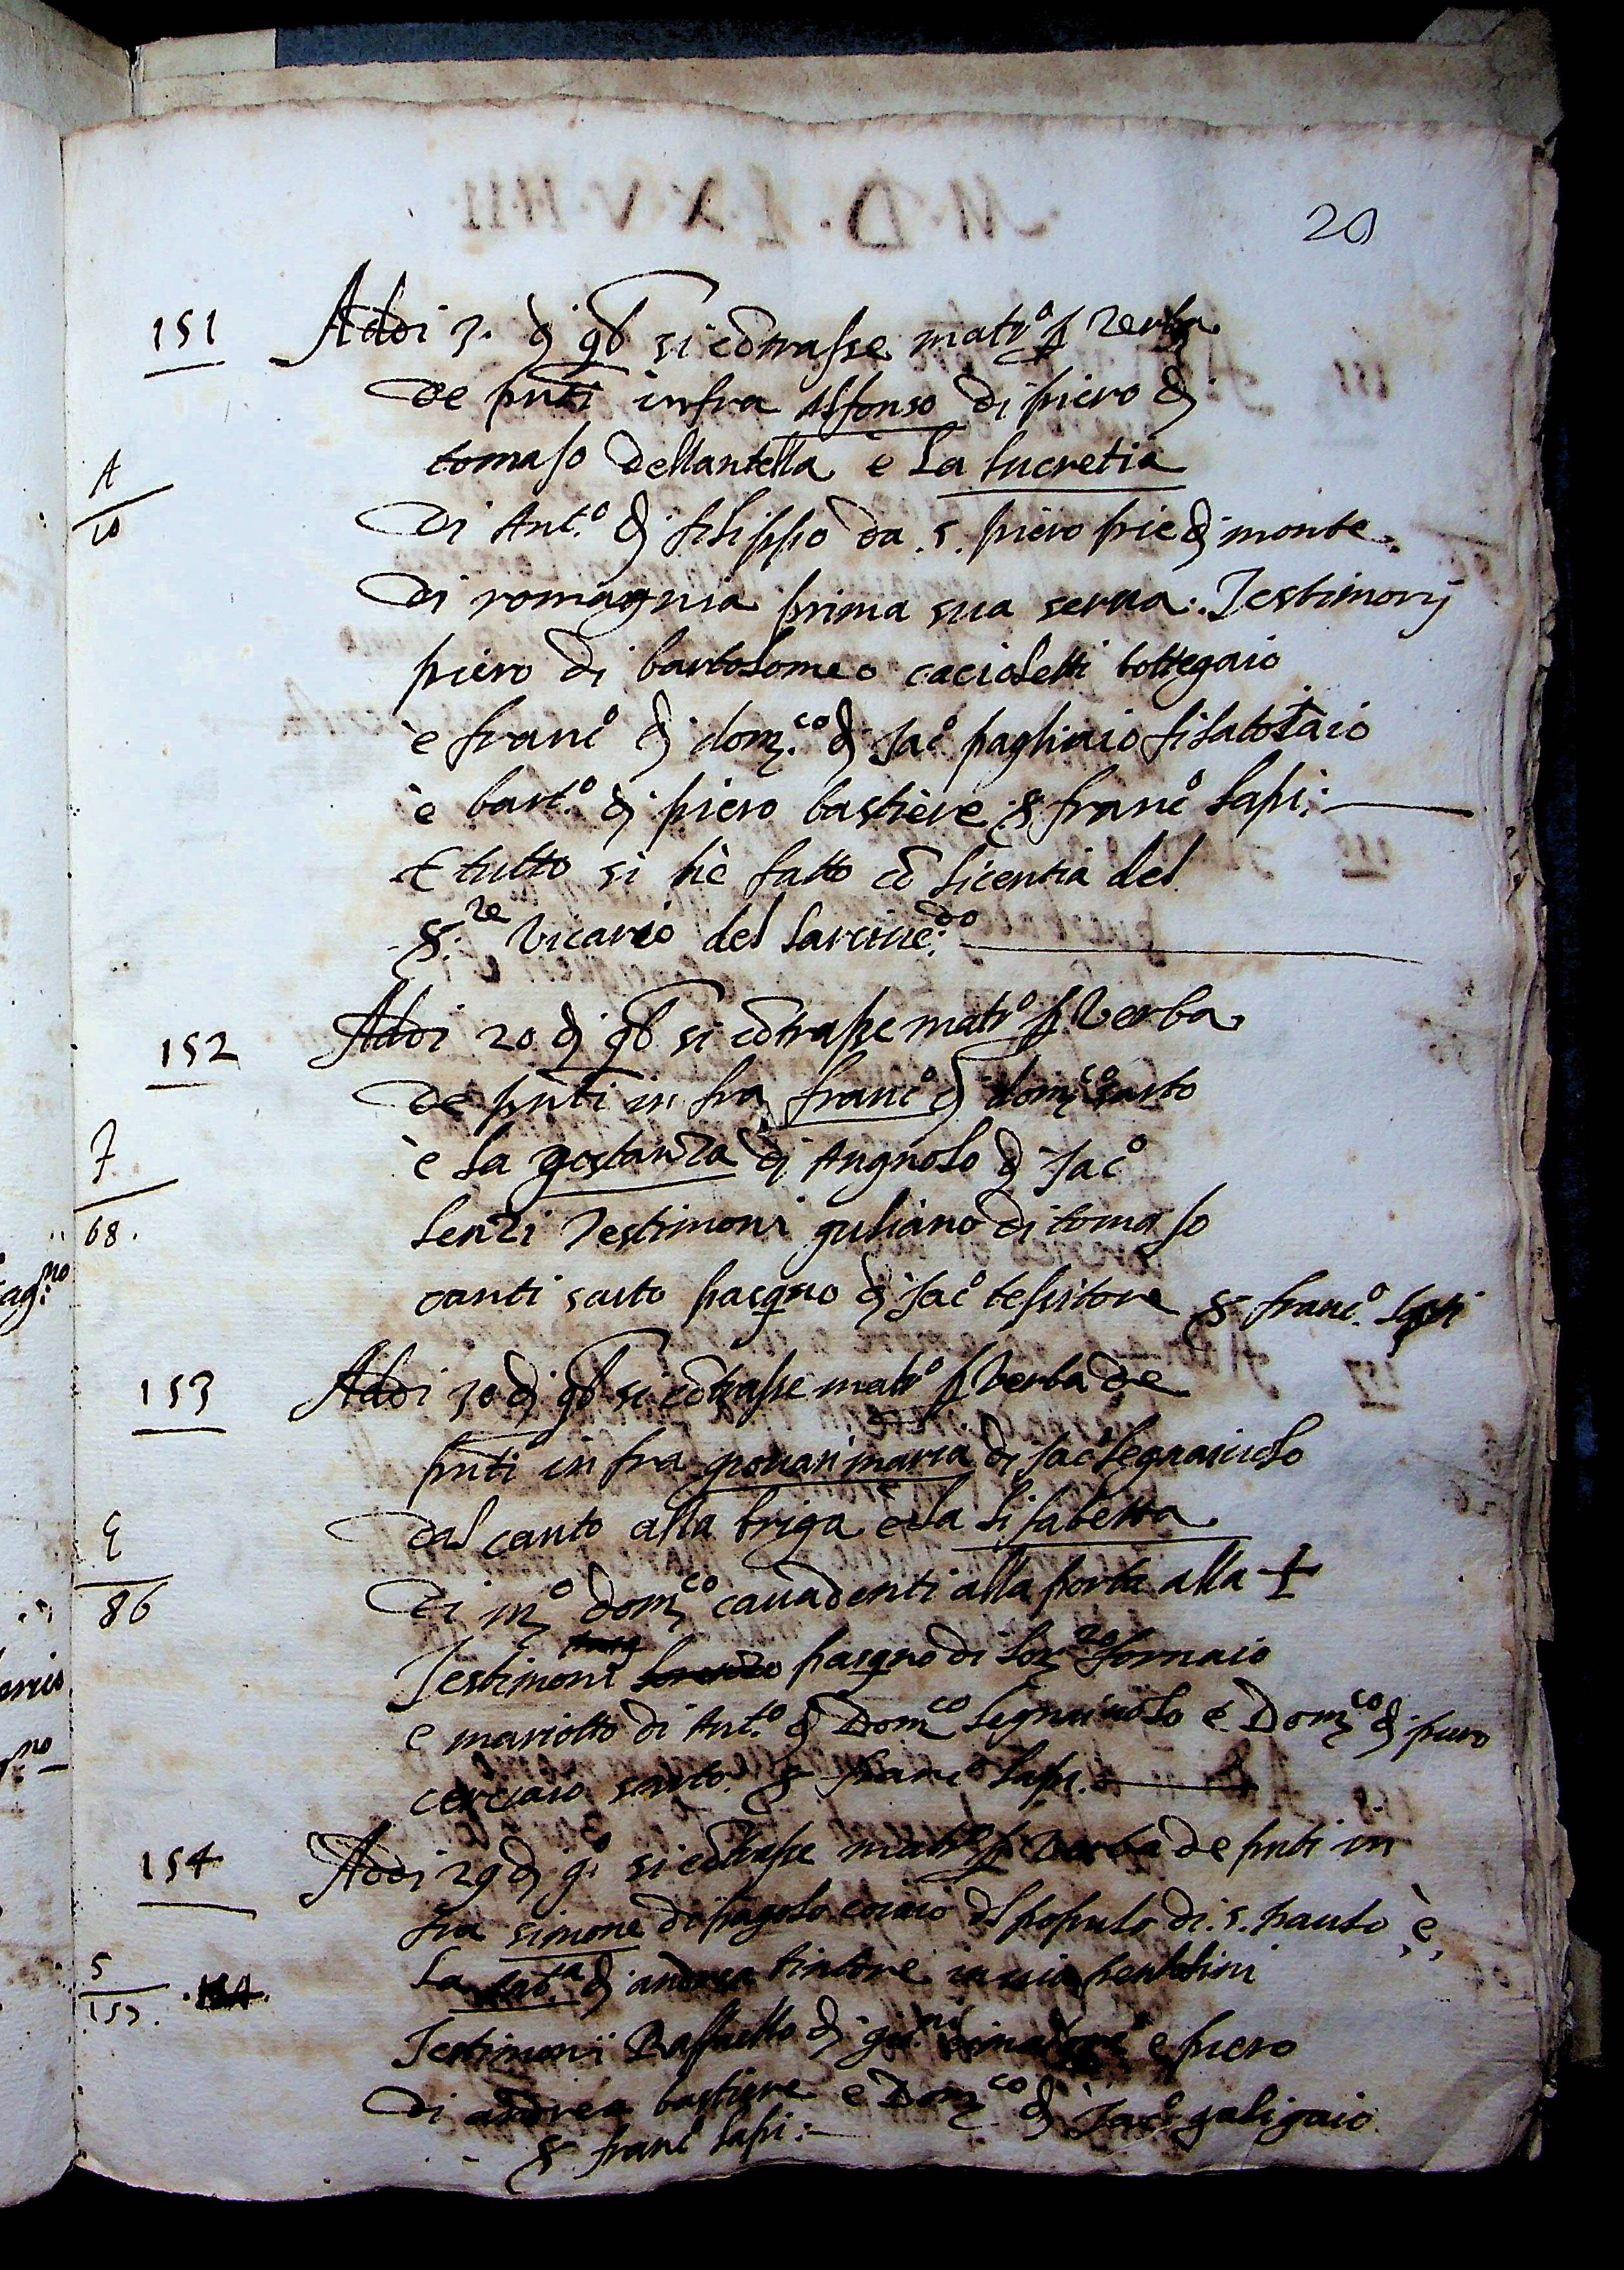 20
151
Addi 3. di 9b si cõtrasse matr.o p verba
de pnti infra Alfonso di piero di
tomaso dellantella e La Lucretia
A
10
di Ant.o di filippo da .s. piero pie di monte.
di romagnia prima sua serua. Testimonij
piero di bartolomeo caciolelli bottegaio
è franc.o di dom.co di Jac.o pagliaio filatoiaio
è bart.o di piero bastiere S. franc.o Lapi:
E tutto si hè fatto cõ licentia del
S.re Vicario del Larciue.do
152
Addi 20 di 9b si cõtrasse matr.o p Verba
de pnti in fra franc.o di dom.co sarto
è La gostanza di Angnolo di Jac.o
F
68.
Lenzi Testimoni guliano di tomaso
canti sarto pasquo di Jac.o tessitore S. franc.o Lapi
153
Addi 30 di 9b si cõtrasse matr.o p Verba de
pnti in fra giouan maria di Jac.o legnaiuolo
dal canto alla briga e La Lisabetta
G
86
di m.o dom.co cauadenti alla porta alla +
Testimoni pasquo di Lor.zo fornaio
e mariotto di Ant.o di Dom.co legnaiuolo e Dom.co di piero
sarto. S. franc.o Lapi.
154
Addi 29 di si cõtrasse matr.o p Verba de pnti in
fra simone di pagolo coiaio del popolo di .s. paulo è,
La Ant.ia di andrea tintore in
S
153.
Testimoni Raffaello di e piero
di andrea bastiere e Dom.co di Jac.o galigaio
S. franc.o Lapi: